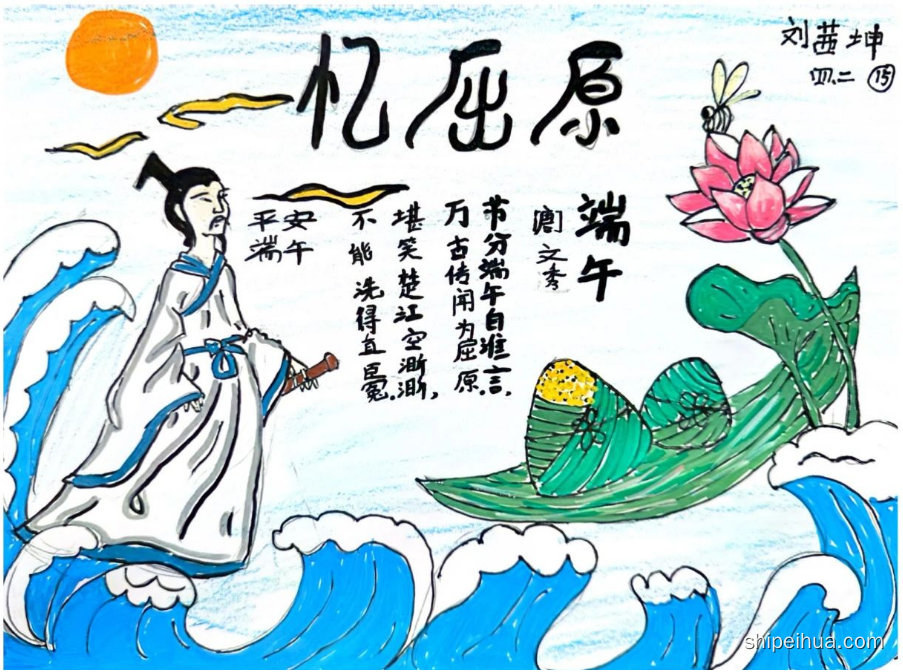 忆屈原
刘茜坤
四.二 ⑮
端午
唐文秀
节分端午自谁言,
万古传闻为屈原.
堪笑楚江空渐渐,
不能洗得直臣冤.
平安
端午
shipeihua.com